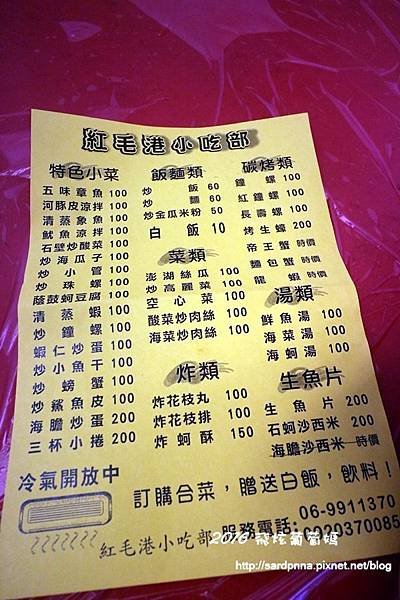 紅毛港小吃部
特色小菜
五味章魚 100
河豚皮涼拌 100
清蒸象魚 100
魷魚涼拌 100
石壁炒酸菜 100
炒海瓜子 100
炒小管 100
炒珠螺 100
蔭鼓蚵豆腐 100
清蒸蝦 100
炒鐘螺 100
蝦仁炒蛋 100
炒小魚干 100
炒螃蟹 100
炒鯊魚皮 100
海膽炒蛋 200
三杯小捲 200
飯麵類
炒飯 60
炒麵 60
炒金瓜米粉 50
白飯 10
菜類
澎湖絲瓜 100
炒高麗菜 100
空心菜 100
酸菜炒肉絲 100
海菜炒肉絲 100
炸類
炸花枝丸 100
炸花枝排 100
炸蚵酥 150
碳烤類
鐘螺 100
紅鐘螺 100
長壽螺 100
烤生蠔 200
帝王蟹 時價
麵包蟹 時價
龍蝦 時價
湯類
鮮魚湯 100
海菜湯 100
海蚵湯 100
生魚片
生魚片 200
石蚵沙西米 200
海膽沙西米 時價
冷氣開放中
訂購合菜，贈送白飯，飲料！
紅毛港小吃部
服務電話:
06-9911370
0920370085
2016 飛炫葡萄媽
http://sardpnna.pixnet.net/blog